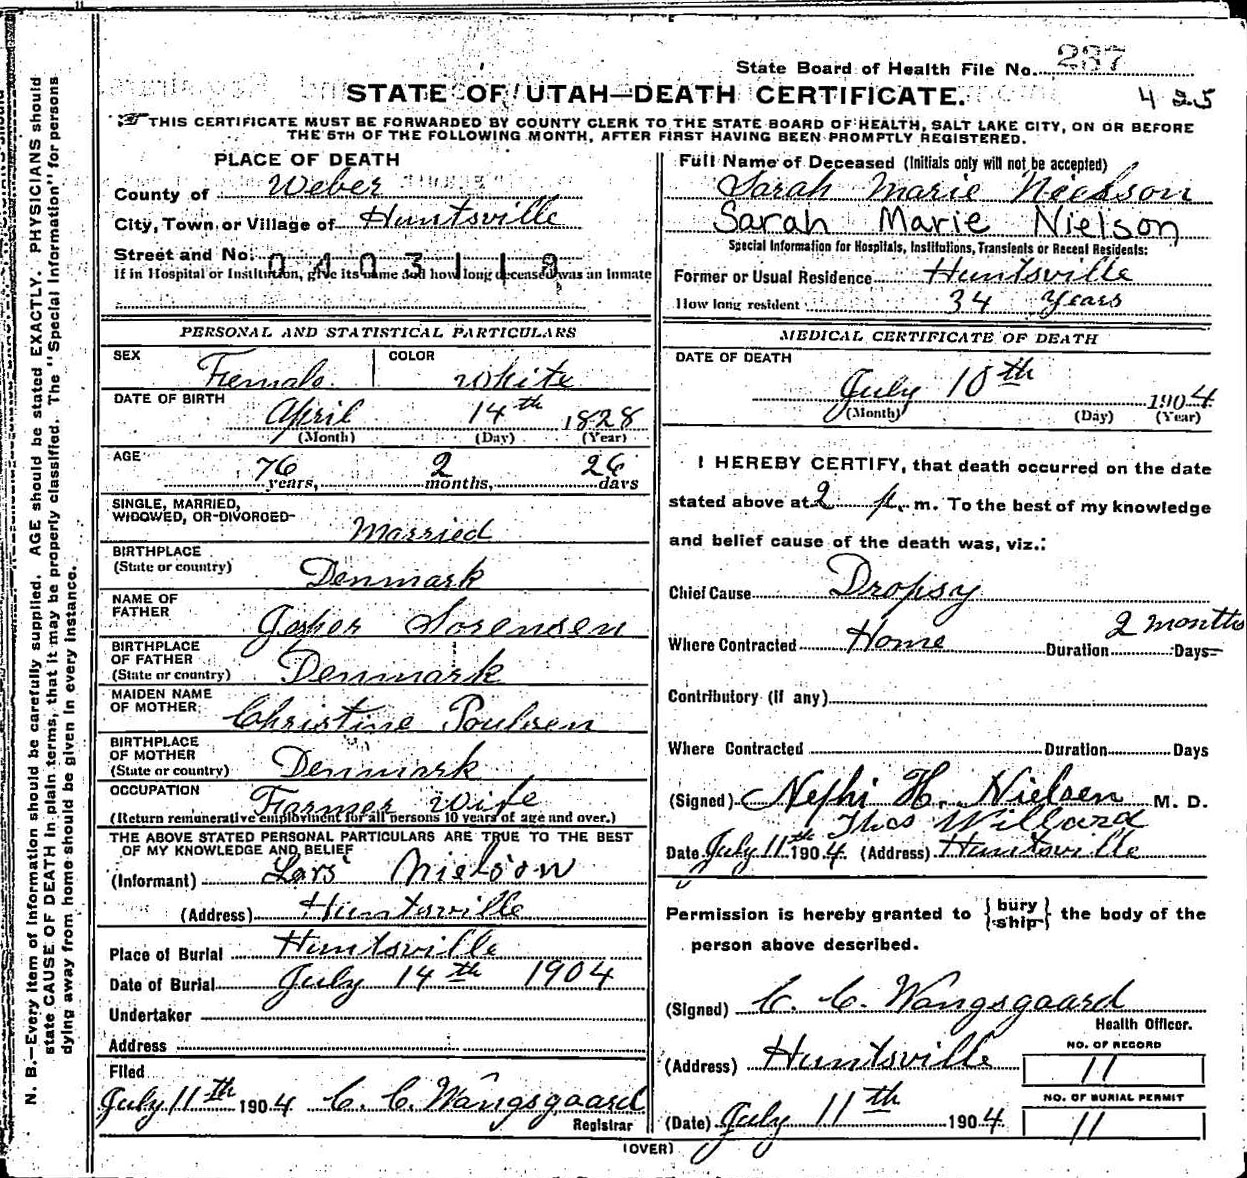 State Board of Health File No. 237
425
STATE OF UTAH—DEATH CERTIFICATE.
THIS CERTIFICATE MUST BE FORWARDED BY COUNTY CLERK TO THE STATE BOARD OF HEALTH, SALT LAKE CITY, ON OR BEFORE
THE 5TH OF THE FOLLOWING MONTH, AFTER FIRST HAVING BEEN PROMPTLY REGISTERED.
PLACE OF DEATH
County of Weber
City, Town or Village of Huntsville
Street and No.
If in Hospital or Institution, give its name and how long deceased was an inmate
PERSONAL AND STATISTICAL PARTICULARS
SEX Female COLOR White
DATE OF BIRTH April 14th 1828
(Month) (Day) (Year)
AGE 76 years, 2 months, 26 days
SINGLE, MARRIED,
WIDOWED, OR DIVORCED Married
BIRTHPLACE
(State or country) Denmark
NAME OF
FATHER Jesper Sorensen
BIRTHPLACE
OF FATHER
(State or country) Denmark
MAIDEN NAME
OF MOTHER Christine Poulsen
BIRTHPLACE
OF MOTHER
(State or country) Denmark
OCCUPATION Farmer Wife
(Return remunerative employment for all persons 10 years of age and over.)
THE ABOVE STATED PERSONAL PARTICULARS ARE TRUE TO THE BEST
OF MY KNOWLEDGE AND BELIEF
(Informant) Lars Nielson
(Address) Huntsville
Place of Burial Huntsville
Date of Burial July 14th 1904
Undertaker
Address
Filed
July 11th 1904 C. C. Wangsgaard
Registrar
Full Name of Deceased (Initials only will not be accepted)
Sarah Marie Nielson
Sarah Marie Nielson
Special Information for Hospitals, Institutions, Transients or Recent Residents:
Former or Usual Residence Huntsville
How long resident 34 Years
MEDICAL CERTIFICATE OF DEATH
DATE OF DEATH
July 10th 1904
(Month) (Day) (Year)
I HEREBY CERTIFY, that death occurred on the date
stated above at 2 p. m. To the best of my knowledge
and belief cause of the death was, viz.:
Chief Cause Dropsy
Where Contracted Home Duration 2 months Days
Contributory (if any)
Where Contracted Duration Days
(Signed) Nephi H. Nielsen M. D.
Thos Willard
Date July 11th 1904. (Address) Huntsville
Permission is hereby granted to {bury ship} the body of the
person above described.
(Signed) C. C. Wangsgaard
Health Officer.
(Address) Huntsville
NO. OF RECORD
11
NO. OF BURIAL PERMIT
11
(Date) July 11th 1904.
(OVER)
N. B.—Every item of information should be carefully supplied. AGE should be stated EXACTLY. PHYSICIANS should
state CAUSE OF DEATH in plain terms, that it may be properly classified. The "Special Information" for persons
dying away from home should be given in every instance.